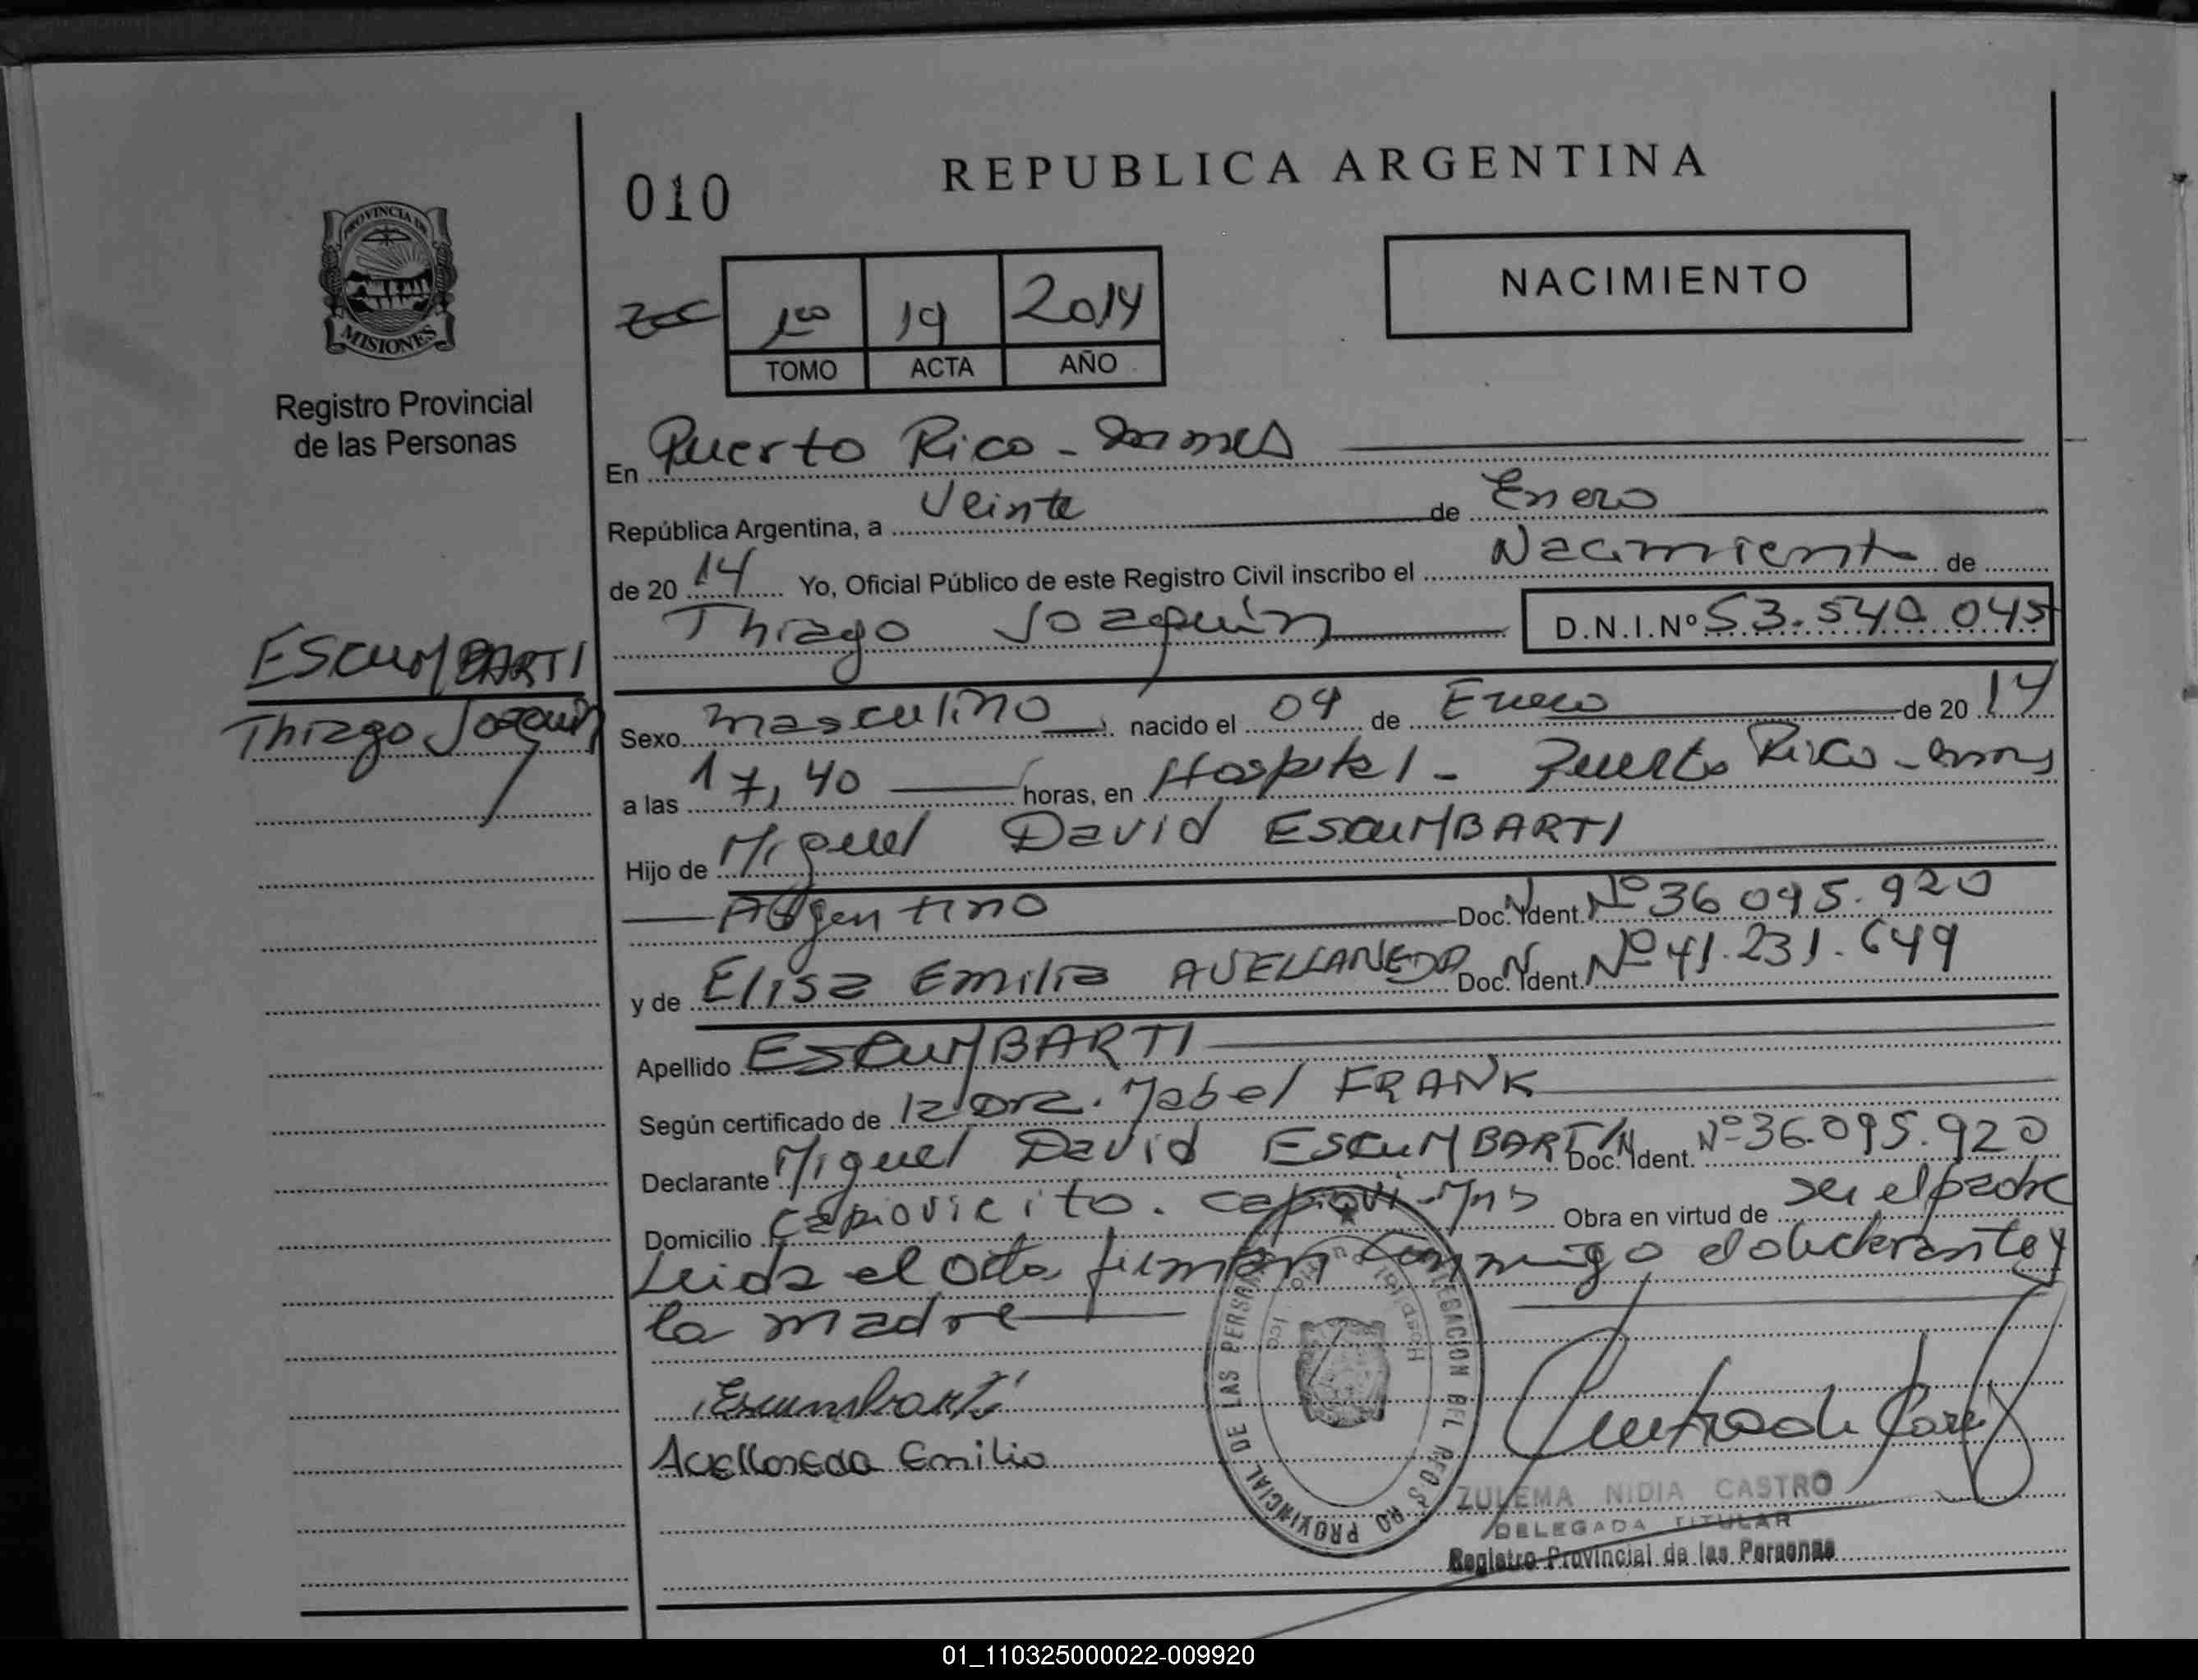 010
REPUBLICA ARGENTINA
PROVINCIA DE
MISIONES
Registro Provincial
de las Personas
NACIMIENTO
1ro 19 2014
TOMO ACTA AÑO
En Puerto Rico - Mnes
República Argentina, a Veinte de Enero
de 20 14 Yo, Oficial Público de este Registro Civil inscribo el Nacimiento de
Thiago Joaquín D.N.I.Nº 53.540.045
ESCUMBARTI
Thiago Joaquín
Sexo masculino nacido el 09 de Enero de 20 14
a las 17,40 horas, en Hospital - Puerto Rico - Mnes
Hijo de Miguel David ESCUMBARTI
Argentino Doc. Ident. Nº 36.095.920
y de Elisa Emilia AVELLANEDA Doc. Ident. Nº 41.231.649
Apellido ESCUMBARTI
Según certificado de la Dra. FRANK
Declarante Miguel David ESCUMBARTI Doc. Ident. Nº 36.095.920
Domicilio Capiovicito. Capioví - Mns Obra en virtud de ser el padre
Leida el acta firman conmigo el declarante y
la madre
Escumbarti
Avellaneda Emilia
ZULEMA NIDIA CASTRO
DELEGADA TITULAR
Registro Provincial de las Personas
01_110325000022-009920